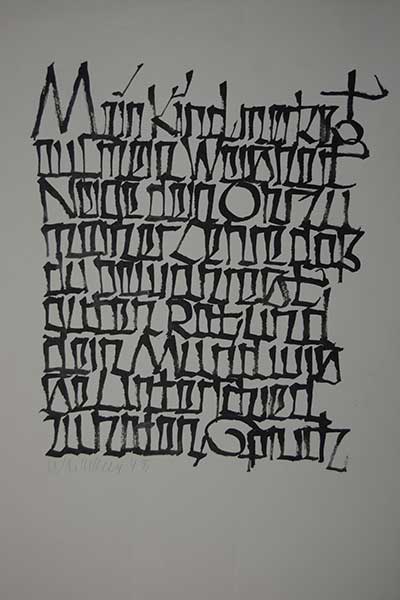 Mein Kind merke
auf meine Weisheit
Neige dein Ohr zu
meiner Lehre daß
du bewahrest
guten Rat und
dein Mund wis
se Unterschied
zu haten, Spruch